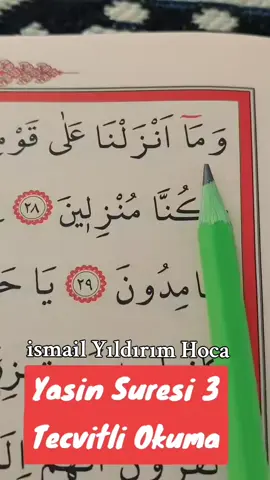 وَمَٓا اَنْزَلْنَا عَلٰى قَوْمِ
كُنَّا مُنْزِل۪ينَ ٢٨
امِدُونَ ٢٩ يَا حَ
ismail Yıldırım Hoca
Yasin Suresi 3
Tecvitli Okuma